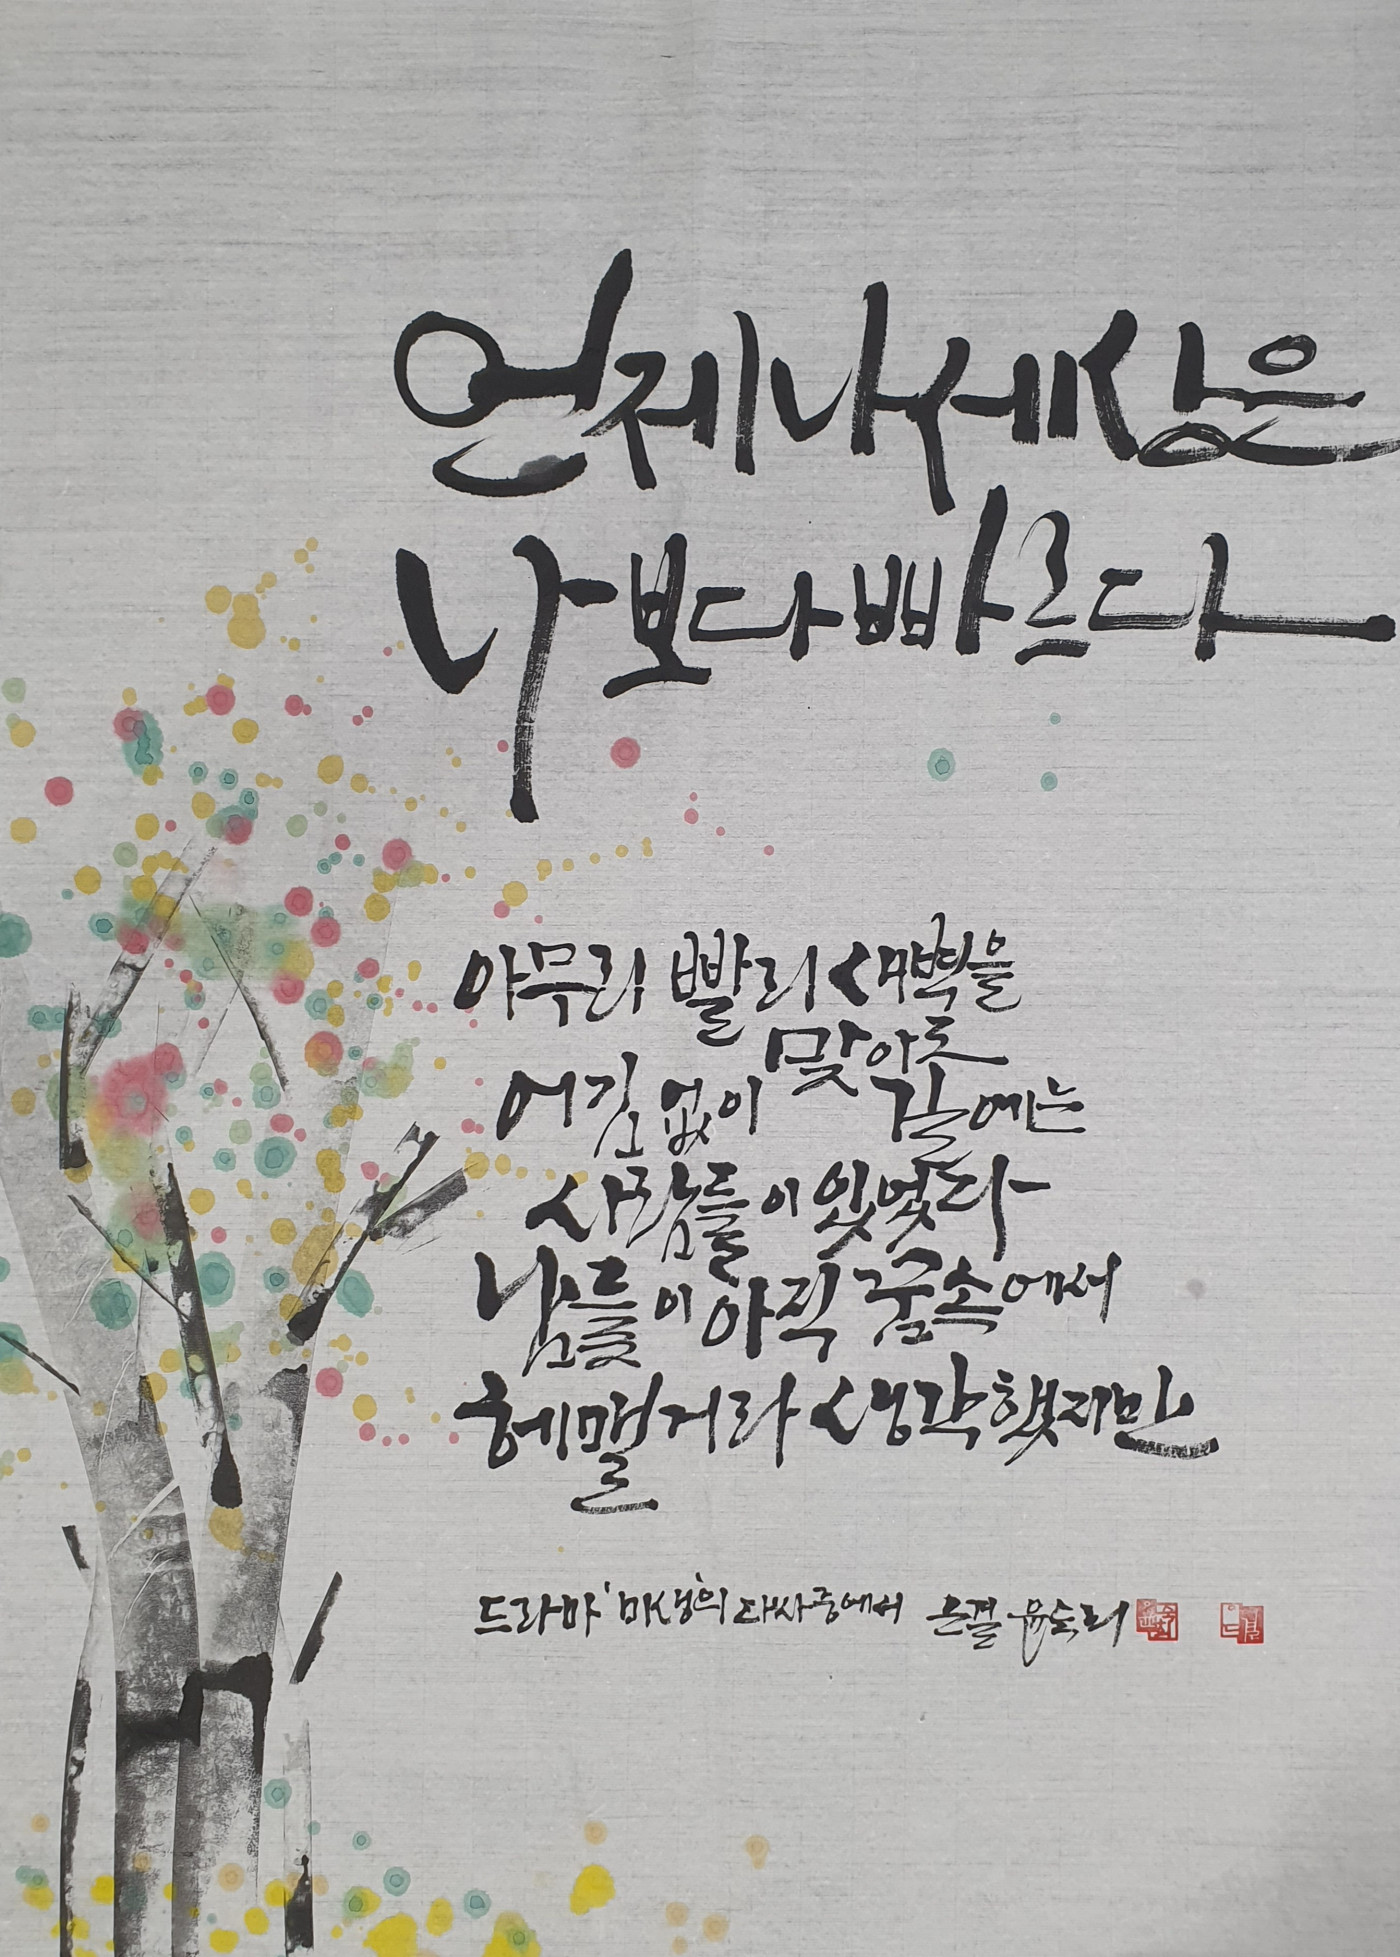 언제나 세상은
나보다 빠르다
아무리 빨리 새벽을
맞아도
어김없이 길에는
사람들이 있었다
남들이 아직 꿈속에서
헤맬거라 생각했지만
드라마 '미생'의 대사중에서 은결 윤숙리